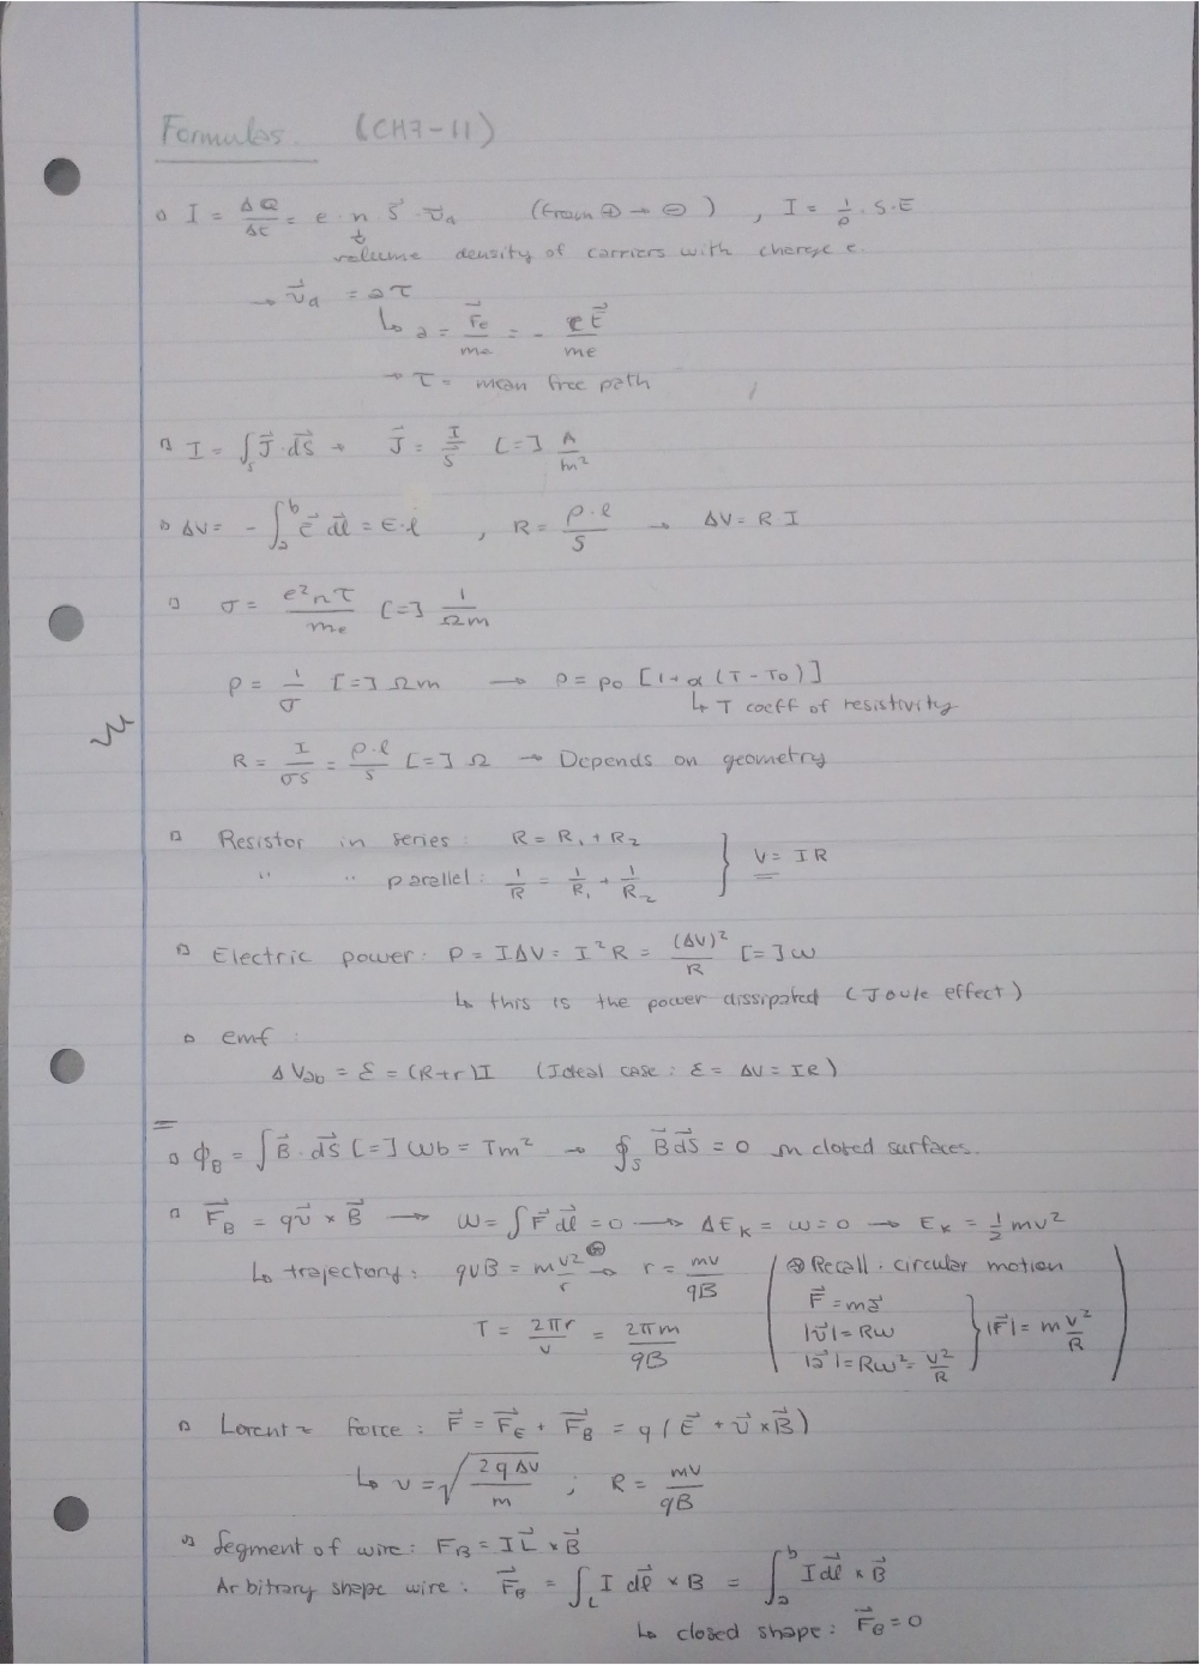 Formulas. (CH7-11)
▫ I = ΔQ/Δt = e·n S⃗·v⃗a (from ⊕ → ⊖), I = 1/ρ · S·E
↳ volume density of carriers with charge e.
→ v⃗a = aτ
↳ a = F⃗e/me = - eE⃗/me
→ τ = mean free path
▫ I = ∫s J⃗·dS⃗ → J⃗ = I/S⃗ [=] A/m²
▫ ΔV = - ∫a^b E⃗ dl⃗ = E·l , R = ρ·l/S → ΔV = R I
▫ σ = e²nτ/me [=] 1/Ωm
ρ = 1/σ [=] Ωm → ρ = ρ0 [1+α(T-T0)]
↳ T coeff of resistivity
R = I/σS = ρ·l/S [=] Ω → Depends on geometry
▫ Resistor in series: R = R1 + R2
" " parallel: 1/R = 1/R1 + 1/R2 } V = IR
▫ Electric power: P = IΔV = I²R = (ΔV)²/R [=] W
↳ this is the power dissipated (Joule effect)
▫ emf :
ΔVab = ε = (R+r)I (Ideal case: ε = ΔV = IR)
▫ ϕB = ∫B⃗·dS⃗ [=] Wb = Tm² → ∮s B⃗dS⃗ = 0 in closed surfaces.
▫ F⃗B = qv⃗ × B⃗ → W = ∫F⃗ dl⃗ = 0 → ΔEK = W = 0 → EK = ½mv²
↳ trajectory: qvB = m v²/r ⊛→ r = mv/qB
T = 2πr/v = 2πm/qB
(⊛ Recall. circular motion
F⃗ = ma⃗
|v⃗| = Rω } |F⃗| = m v²/R
|a⃗| = Rω² = v²/R)
▫ Lorentz force: F⃗ = F⃗E + F⃗B = q(E⃗ + v⃗ × B⃗)
↳ v = √(2qΔV/m) ; R = mv/qB
▫ Segment of wire: FB = I L⃗ × B⃗
Arbitrary shape wire: F⃗B = ∫L I dl⃗ × B = ∫a^b I dl⃗ × B⃗
↳ closed shape: F⃗B = 0